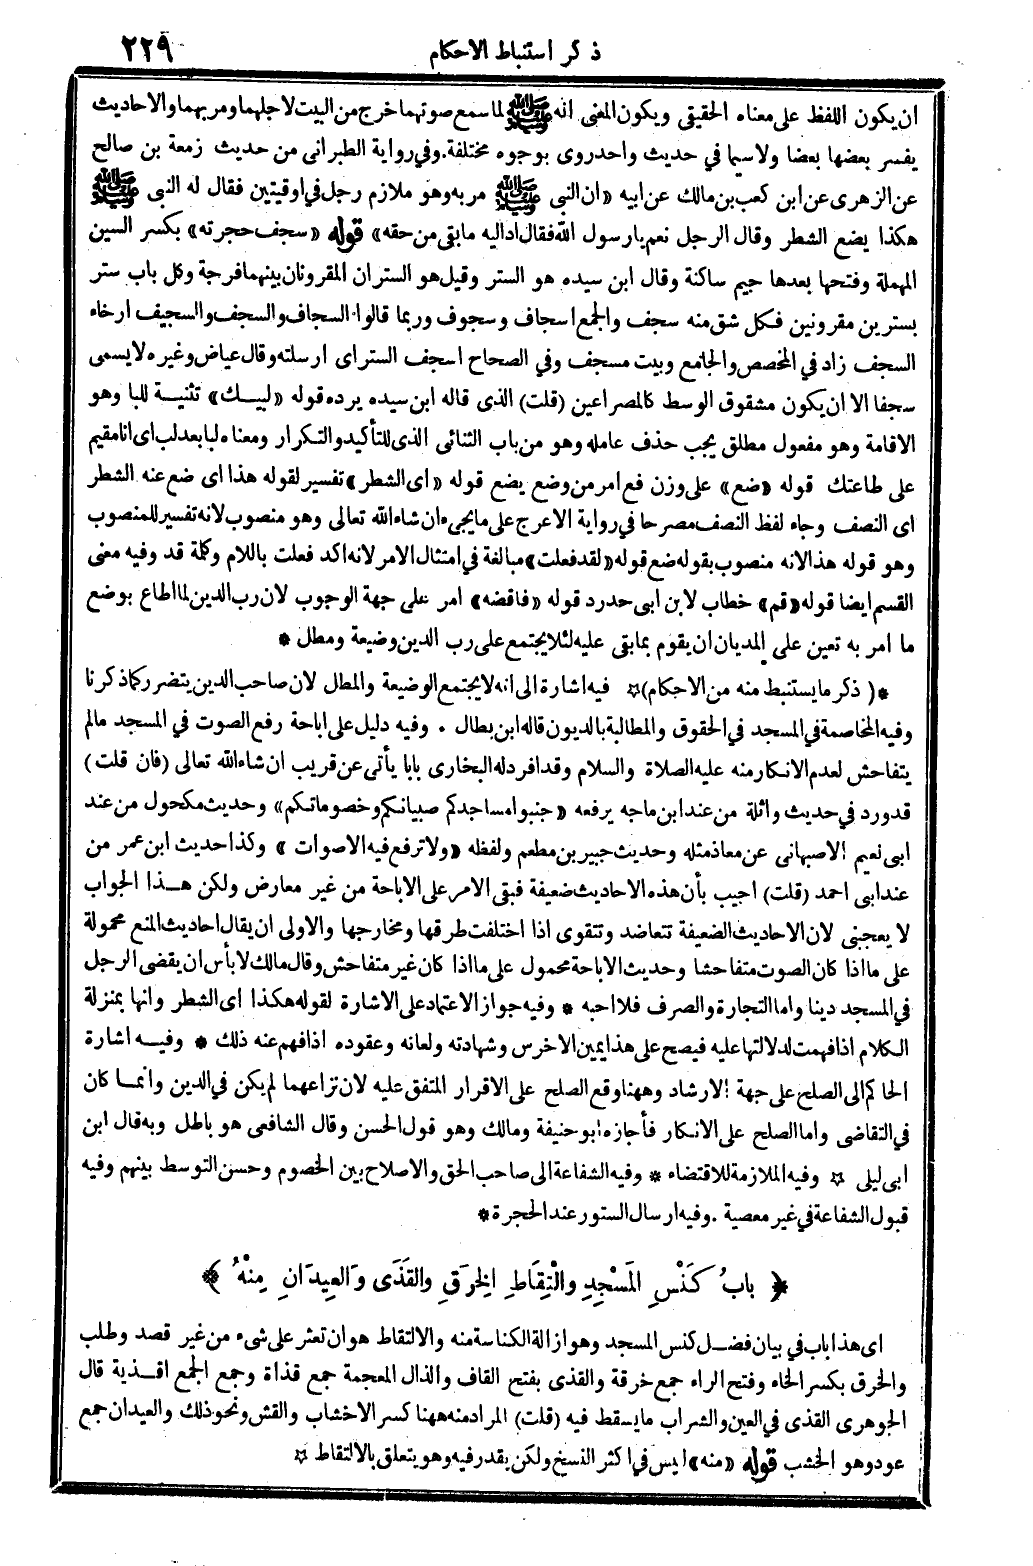 ذكر استنباط الاحكام ٢٢٩
ان يكون اللفظ على معناه الحقيقى ويكون المعنى انه ﷺ لما سمع صوتهما خرج من البيت لاجلهما ومر بهما والاحاديث
يفسر بعضها بعضا ولاسيما في حديث واحد روى بوجوه مختلفة. وفي رواية الطبرانى من حديث زمعة بن صالح
عن الزهرى عن ابن كعب بن مالك عن ابيه «ان النبى ﷺ مر به وهو ملازم رجل في اوقيتين فقال له النبى ﷺ
هكذا يضع الشطر وقال الرجل نعم يارسول الله فقال اد اليه مابقى من حقه» قوله «سجف حجرته» بكسر السين
المهملة وفتحها بعدها جيم ساكنة وقال ابن سيده هو الستر وقيل هو الستران المقرونان بينهما فرجة وكل باب ستر
بسترين مقرونين فكل شق منه سجف والجمع اسجاف وسجوف وربما قالوا السجاف والسجف والسجيف ارخاء
السجف زاد في المخصص والجامع وبيت مسجف وفي الصحاح اسجف الستر اى ارسلته وقال عياض وغيره لايسمى
سجفا الا ان يكون مشقوق الوسط كالمصراعين (قلت) الذى قاله ابن سيده يرده قوله «لبيـك» تثنيـة للبا وهو
الاقامة وهو مفعول مطلق يجب حذف عامله وهو من باب الثنائى الذى للتأكيد والتكرار ومعناه لبا بعد لب اى انا مقيم
على طاعتك قوله «ضع» على وزن فع امر من وضع يضع قوله «اى الشطر» تفسير لقوله هذا اى ضع عنه الشطر
اى النصف وجاء لفظ النصف مصرحا في رواية الاعرج على مايجىء ان شاء الله تعالى وهو منصوب لانه تفسير للمنصوب
وهو قوله هذا لانه منصوب بقوله ضع قوله «لقد فعلت» مبالغة في امتثال الامر لانه اكد فعلت باللام وكلمة قد وفيه معنى
القسم ايضا قوله «قم» خطاب لابن ابى حدرد قوله «فاقضه» امر على جهة الوجوب لان رب الدين لما اطاع بوضع
ما امر به تعين على المديان ان يقوم بمابقى عليه لئلا يجتمع على رب الدين وضيعة ومطل *
*( ذكر مايستنبط منه من الاحكام)☆ فيه اشارة الى انه لايجتمع الوضيعة والمطل لان صاحب الدين يتضرر كما ذكرنا
وفيه المخاصمة في المسجد في الحقوق والمطالبة بالديون قاله ابن بطال . وفيه دليل على اباحة رفع الصوت في المسجد مالم
يتفاحش لعدم الانكار منه عليه الصلاة والسلام وقد افرد له البخارى بابا يأتى عن قريب ان شاء الله تعالى (فان قلت)
قد ورد في حديث واثلة من عند ابن ماجه يرفعه «جنبوا مساجدكم صبيانكم وخصوماتكم» وحديث مكحول من عند
ابى نعيم الاصبهانى عن معاذ مثله وحديث جبير بن مطعم ولفظه «ولا ترفع فيه الاصوات» وكذا حديث ابن عمر من
عند ابى احمد (قلت) اجيب بأن هذه الاحاديث ضعيفة فبقى الامر على الاباحة من غير معارض ولكن هـذا الجواب
لا يعجبنى لان الاحاديث الضعيفة تتعاضد وتتقوى اذا اختلفت طرقها ومخارجها والاولى ان يقال احاديث المنع محمولة
على ما اذا كان الصوت متفاحشا وحديث الاباحة محمول على ما اذا كان غير متفاحش وقال مالك لا بأس ان يقضى الرجل
في المسجد دينا واما التجارة والصرف فلا احبه * وفيه جواز الاعتماد على الاشارة لقوله هكذا اى الشطر وانها بمنزلة
الكلام اذا فهمت لدلالتها عليه فيصح على هذا يمين الاخرس وشهادته ولعانه وعقوده اذا فهم عنه ذلك * وفيـه اشارة
الحاكم الى الصلح على جهة الارشاد وههنا وقع الصلح على الاقرار المتفق عليه لان نزاعهما لم يكن في الدين وانمـا كان
في التقاضى واما الصلح على الانكار فأجازه ابو حنيفة ومالك وهو قول الحسن وقال الشافعى هو باطل وبه قال ابن
ابى ليلى ☆ وفيه الملازمة للاقتضاء * وفيه الشفاعة الى صاحب الحق والاصلاح بين الخصوم وحسن التوسط بينهم وفيه
قبول الشفاعة في غير معصية . وفيه ارسال الستور عند الحجرة *
﴿ بابُ كَنْسِ المَسْجِدِ والْتِقَاطِ الخِرَقِ والقَذَى وَالعِيدَانِ مِنْهُ ﴾
اى هذا باب في بيان فضـل كنس المسجد وهو ازالة الكناسة منه والالتقاط هو ان تعثر على شىء من غير قصد وطلب
والخرق بكسر الخاء وفتح الراء جمع خرقة والقذى بفتح القاف والذال المعجمة جمع قذاة وجمع الجمع اقـذية قال
الجوهرى القذى في العين والشراب مايسقط فيه (قلت) المراد منه ههنا كسر الاخشاب والقش ونحو ذلك والعيدان جمع
عود وهو الخشب قوله «منه» ليس في اكثر النسخ ولكن يقدر فيه وهو يتعلق بالالتقاط ☆